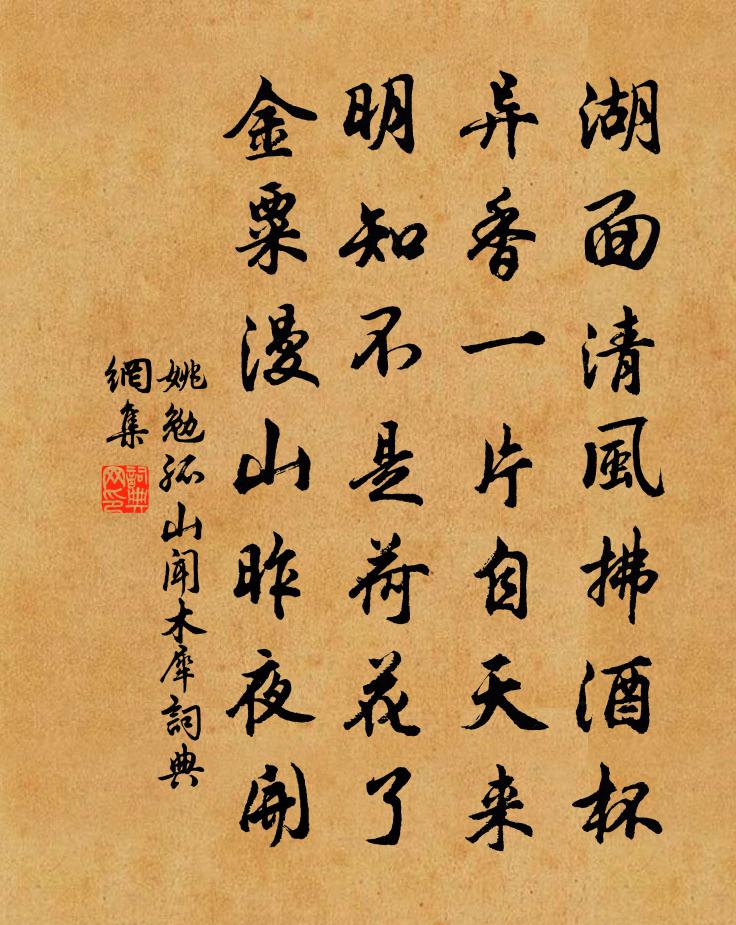 湖面清風拂酒杯
异香一片自天来
明知不是荷花了
金粟漫山昨夜開
姚勉孤山聞木犀詞典
網集
詞典
网印